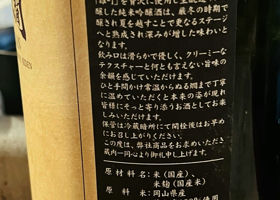 「雄町」を贅沢に使用し醸
した純米吟醸酒は、厳冬の時期で
醸され夏を越すことで更なるステージ
へと熟成され深みが増した味わいと
なります。
飲み口は滑らかで優しく、クリーミーな
テクスチャーと何とも言えない旨味の
余韻を感じていただけます。
ひと手間かけ常温からぬる燗まで丁寧
に温めていただくと本来の姿が現れ
皆様にそっと寄り添うお酒としてお楽
しみいただけます。
保管は冷蔵暗所にて開栓後はお早め
にお召し上がりください。
この度は、弊社商品をお求めいただき
蔵内一同心より御礼申し上げます。
原材料名：米（国産）、
米麹（国産米）
原料米：岡山県産